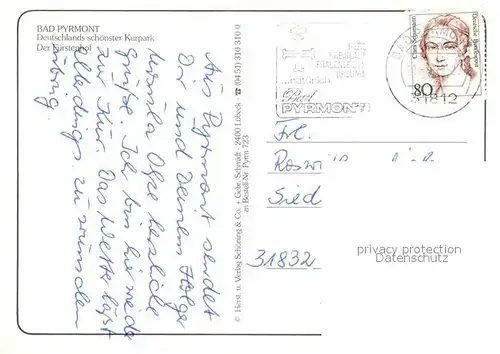 BAD PYRMONT
Deutschlands schönster Kurpark
Der Fürstenhof
Aus Pyrmont sendet
Dir und Deinem Holger
Ursula Olge herzliche
Grüße. Ich bin hier wieder
zur Kur. Das Wetter läßt
allerdings zu wünschen
übrig.
© Herst. u. Verlag Schöning & Co. + Gebr. Schmidt · 2400 Lübeck · ☎ (04 51) 310 340
zu Bestell-Nr. Pyrm 723
natürlich
Bad
PYRMONT
BAD PYRMONT
31812
80
Clara Schumann
Deutsche Bundespost
Frl.
Rosw
Sied
31832
privacy protection
Datenschutz